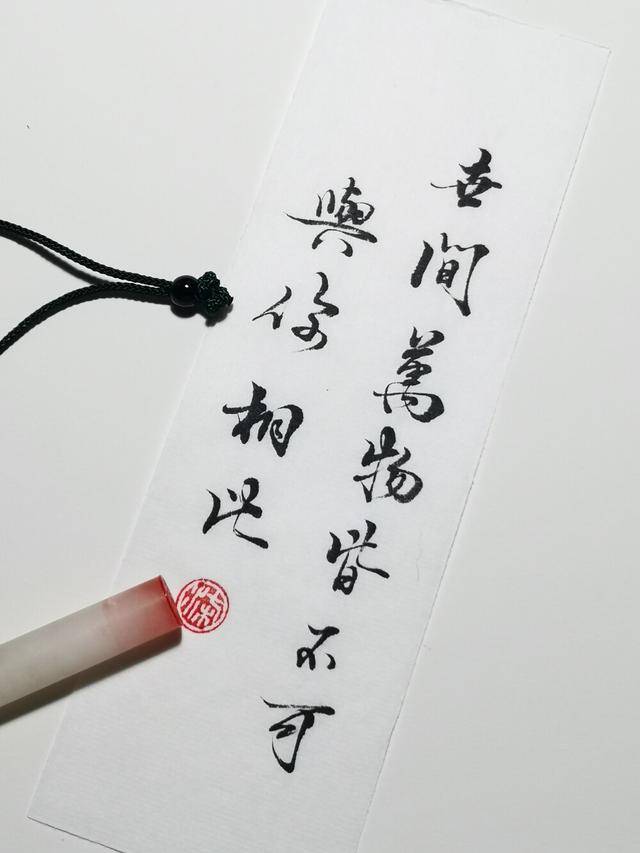 世間萬物皆不可
與你相比